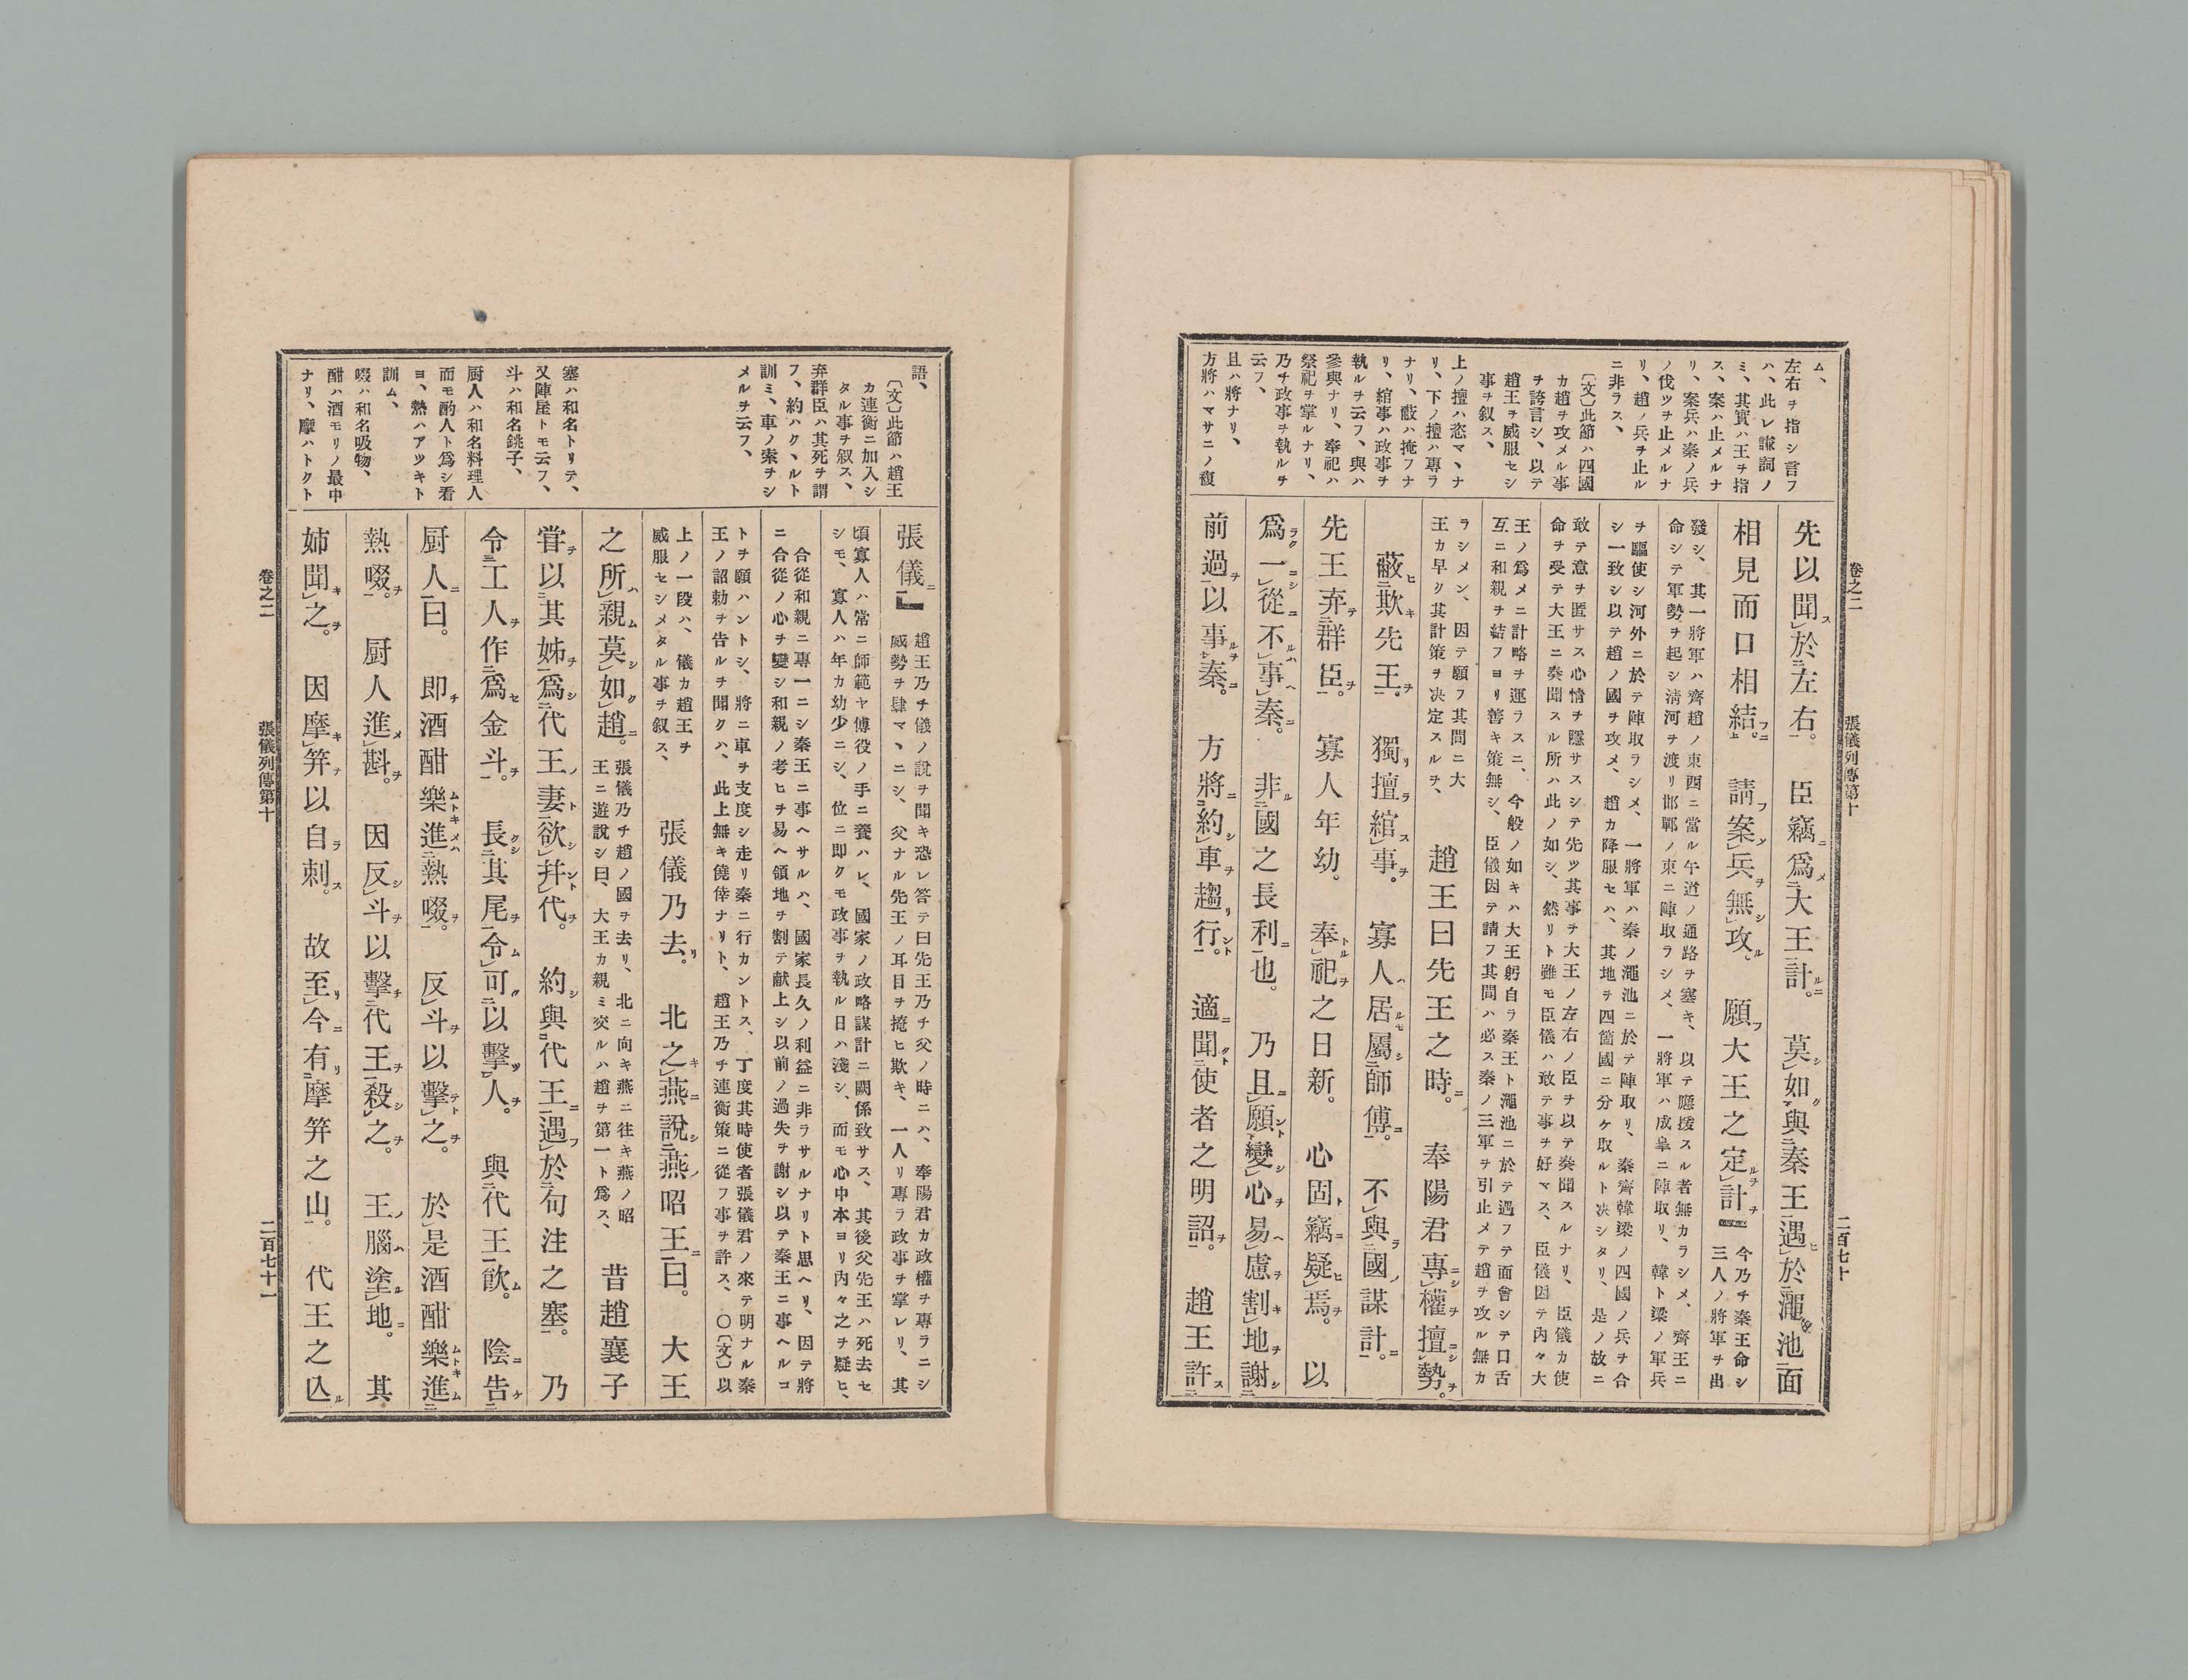 卷之二
張儀列傳第十
二百七十
ム、
左右ヲ指シ言フ
ハ、此レ謙詞ノ
ミ、其實ハ王ヲ指
ス、案ハ止メルナ
リ、案兵ハ秦ノ兵
ノ伐ツヲ止メルナ
リ、趙ノ兵ヲ止ル
ニ非ラス、
〔文〕此節ハ四國
カ趙ヲ攻メル事
ヲ誇言シ、以テ
趙王ヲ威服セシ
事ヲ叙ス、
上ノ擅ハ恣マヽナ
リ、下ノ擅ハ專ラ
ナリ、蔽ハ掩フナ
リ、綰事ハ政事ヲ
執ルヲ云フ、與ハ
參與ナリ、奉祀ハ
祭祀ヲ掌ルナリ、
乃チ政事ヲ執ルヲ
云フ、
且ハ將ナリ、
方將ハマサニノ複
先以聞於左右。臣竊爲大王計。莫如與秦王遇於澠池面
相見而口相結。請案兵無攻、願大王之定計』
今乃チ秦王命シ
三人ノ將軍ヲ出
發シ、其一將軍ハ齊趙ノ東西ニ當ル午道ノ通路ヲ塞キ、以テ應援スル者無カラシメ、齊王ニ
命シテ軍勢ヲ起シ淸河ヲ渡リ邯鄲ノ東ニ陣取ラシメ、一將軍ハ成皐ニ陣取リ、韓ト梁ノ軍兵
ヲ驅使シ河外ニ於テ陣取ラシメ、一將軍ハ秦ノ澠池ニ於テ陣取リ、秦齊韓梁ノ四國ノ兵ヲ合
シ一致シ以テ趙ノ國ヲ攻メ、趙カ降服セハ、其地ヲ四箇國ニ分ケ取ルト决シタリ、是ノ故ニ
敢テ意ヲ匿サス心情ヲ隱サスシテ先ツ其事ヲ大王ノ左右ノ臣ヲ以テ奏聞スルナリ、臣儀カ使
命ヲ受テ大王ニ奏聞スル所ハ此ノ如シ、然リト雖モ臣儀ハ敢テ事ヲ好マス、臣儀因テ内々大
王ノ爲メニ計略ヲ運ラスニ、今般ノ如キハ大王躬自ラ秦王ト澠池ニ於テ遇フテ面會シテ口舌
互ニ和親ヲ結フヨリ善キ策無シ、臣儀因テ請フ其間ハ必ス秦ノ三軍ヲ引止メテ趙ヲ攻ル無カ
ラシメン、因テ願フ其間ニ大
王カ早リ其計策ヲ决定スルヲ、
趙王曰先王之時。奉陽君專權擅勢。
蔽欺先王。獨擅綰事。寡人居屬師傅。不與國謀計。
先王弃群臣。寡人年幼。奉祀之日新。心固竊疑焉。以
爲一從不事秦。非國之長利也。乃且願變心易慮割地謝
前過以事秦。方將約車趨行。適聞使者之明詔。趙王許
語、
〔文〕此節ハ趙王
カ連衡ニ加入シ
タル事ヲ叙ス、
弃群臣ハ其死ヲ謂
フ、約ハクヽルト
訓ミ、車ノ索ヲシ
メルヲ云フ、
塞ハ和名トリテ、
又陣屋トモ云フ、
斗ハ和名銚子、
厨人ハ和名料理人
而モ酌人ト爲シ看
ヨ、熱ハアツキト
訓ム、
啜ハ和名吸物、
酣ハ酒モリノ最中
ナリ、摩ハトクト
張儀』
趙王乃チ儀ノ說ヲ聞キ恐レ答テ曰先王乃チ父ノ時ニハ、奉陽君カ政權ヲ專ラニシ
威勢ヲ肆マヽニシ、父ナル先王ノ耳目ヲ掩ヒ欺キ、一人リ專ラ政事ヲ掌レリ、其
頃寡人ハ常ニ師範ヤ傅役ノ手ニ養ハレ、國家ノ政略謀計ニ關係致サス、其後父先王ハ死去セ
シモ、寡人ハ年カ幼少ニシ、位ニ即クモ政事ヲ執ル日ハ淺シ、而モ心中本ヨリ内々之ヲ疑ヒ、
合從和親ニ專一ニシ秦王ニ事ヘサルハ、國家長久ノ利益ニ非ラサルナリト思ヘリ、因テ將
ニ合從ノ心ヲ變シ和親ノ考ヒヲ易ヘ領地ヲ割テ献上シ以前ノ過失ヲ謝シ以テ秦王ニ事ヘルコ
トヲ願ハントシ、將ニ車ヲ支度シ走リ秦ニ行カントス、丁度其時使者張儀君ノ來テ明ナル秦
王ノ詔勅ヲ告ルヲ聞クハ、此上無キ僥倖ナリト、趙王乃チ連衡策ニ從フ事ヲ許ス、〇〔文〕以
上ノ一段ハ、儀カ趙王ヲ
威服セシメタル事ヲ叙ス、
張儀乃去。北之燕說燕昭王曰。大王
之所親莫如趙。
張儀乃チ趙ノ國ヲ去リ、北ニ向キ燕ニ往キ燕ノ昭
王ニ遊說シ曰、大王カ親ミ交ルハ趙ヲ第一ト爲ス、
昔趙襄子
甞以其姊爲代王妻欲并代。約與代王遇於句注之塞。乃
令工人作爲金斗。長其尾令可以擊人。與代王飮。陰告
厨人曰。即酒酣樂進熱啜。反斗以擊之。於是酒酣樂進
熱啜。厨人進斟。因反斗以擊代王殺之。王腦塗地。其
姉聞之。因摩笄以自刺。故至今有摩笄之山。代王之亾
卷之二
張儀列傳第十
二百七十一